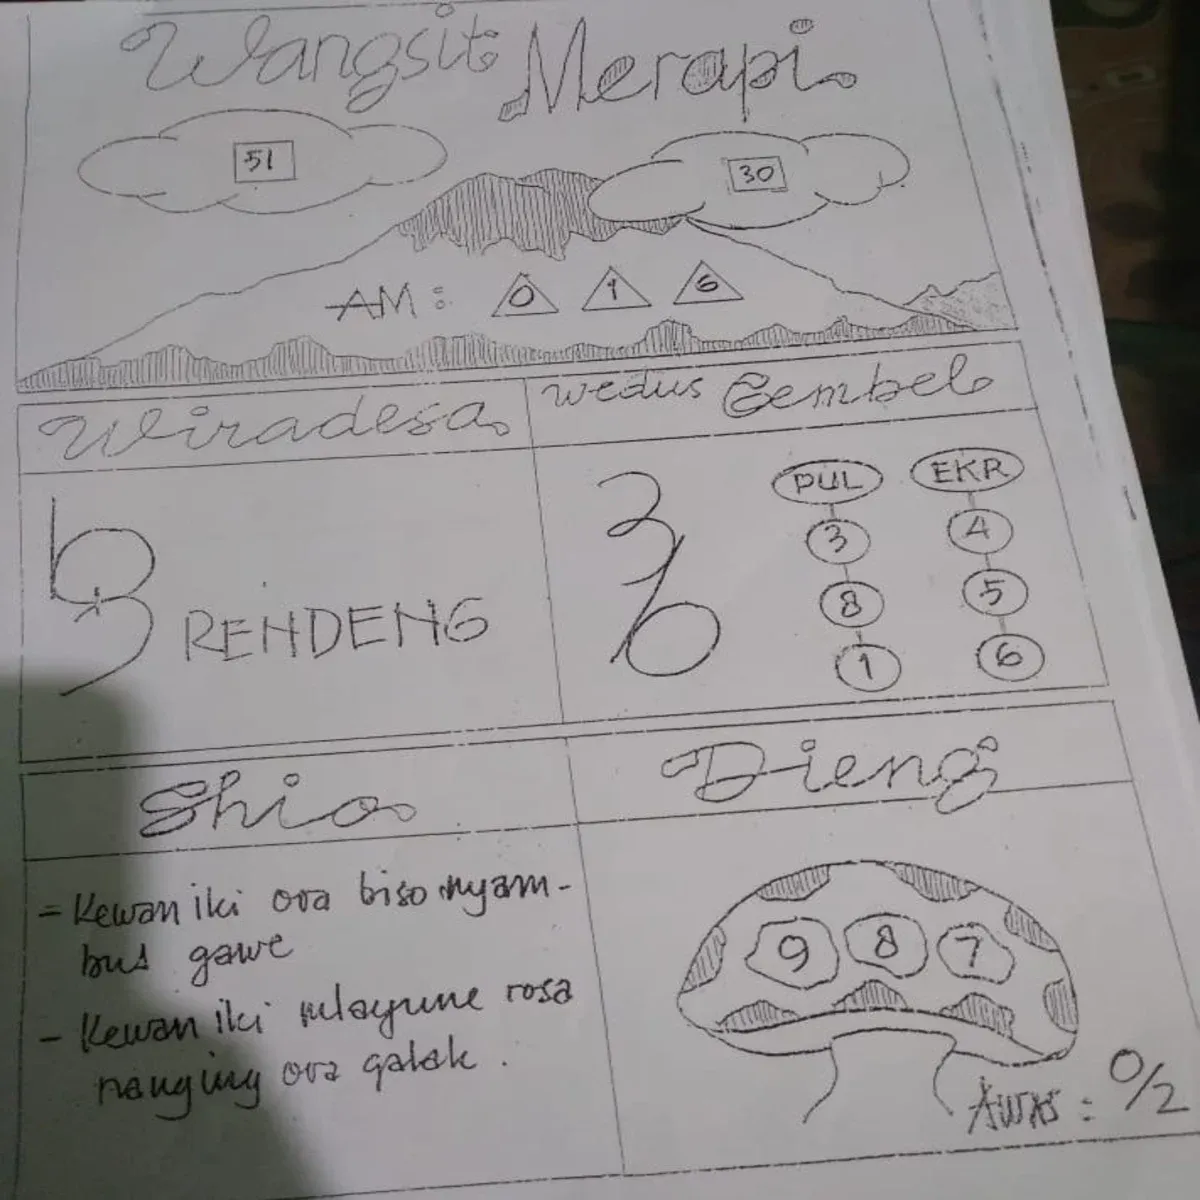 Wangsit Merapi
51
30
AM: 0 1 6
Wiradesa
Wedus Gembel
63
RENDENG
36
PUL EKR
3 4
8 5
1 6
Shio
Dieng
- Kewan iki ora biso nyam-
bus gawe
- Kewan iki mlayune rosa
nanging ora galak.
9 8 7
Awas: 0/2